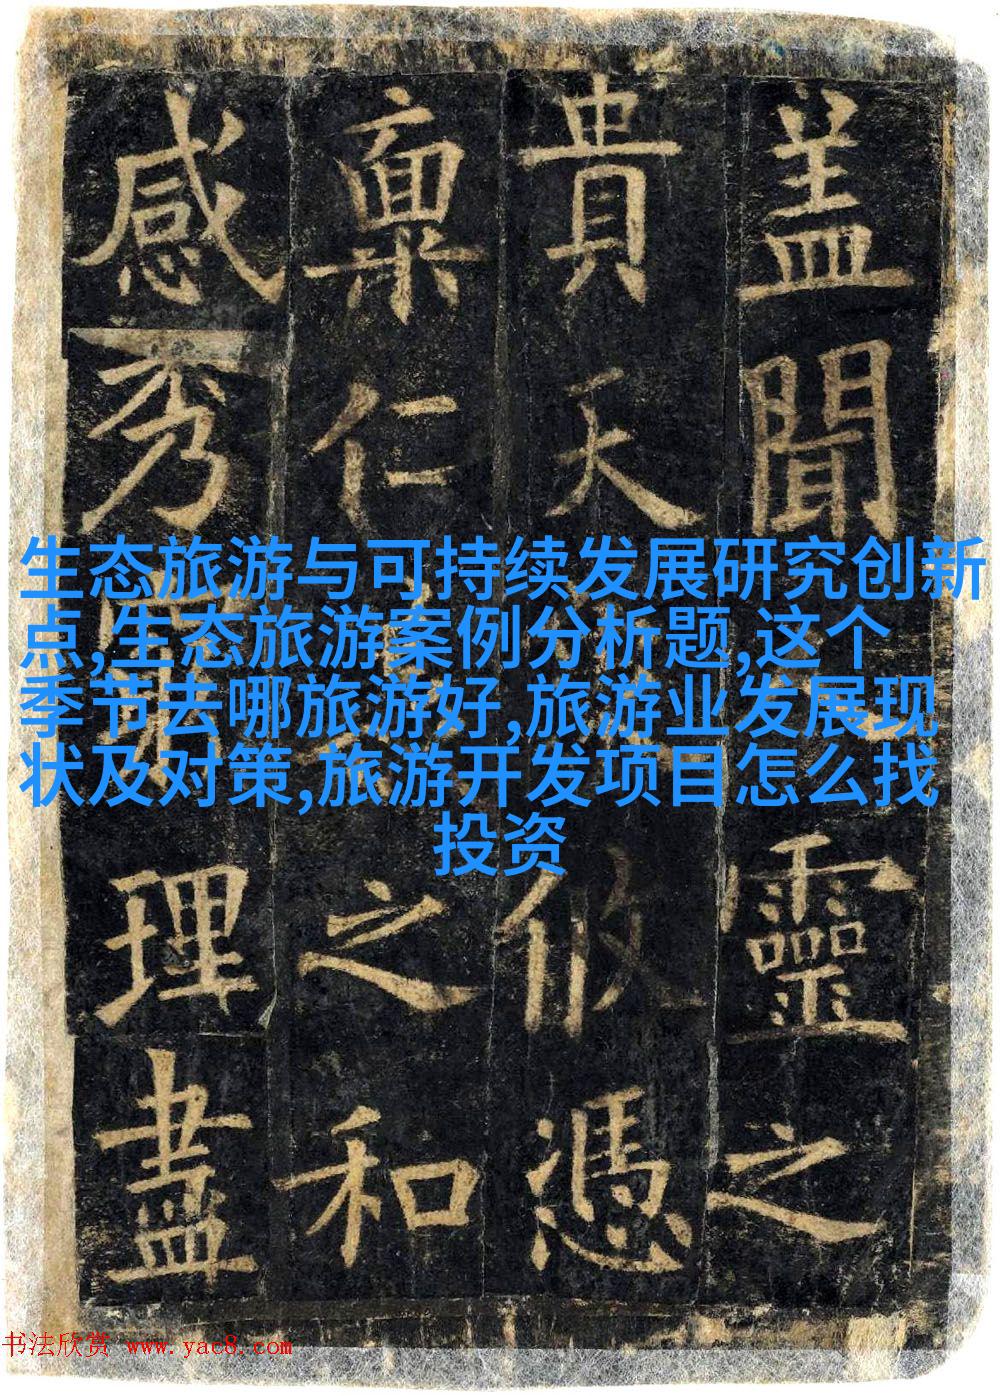 盖聞靈之
貴天攸憑
稟仁之和
感秀理盡
生态旅游与可持续发展研究创新
点,生态旅游案例分析题,这个
季节去哪旅游好,旅游业发展现
状及对策,旅游开发项目怎么找
投资
书法欣赏 www.yac8.com